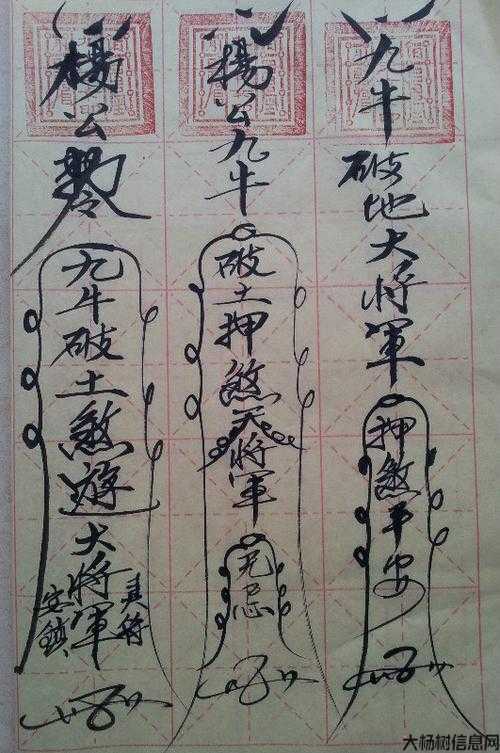 九牛破地大将軍押煞平安
楊公九牛破土押煞天将軍无忌
楊公
九牛破土煞遊大将軍
安鎮
大杨树信息网